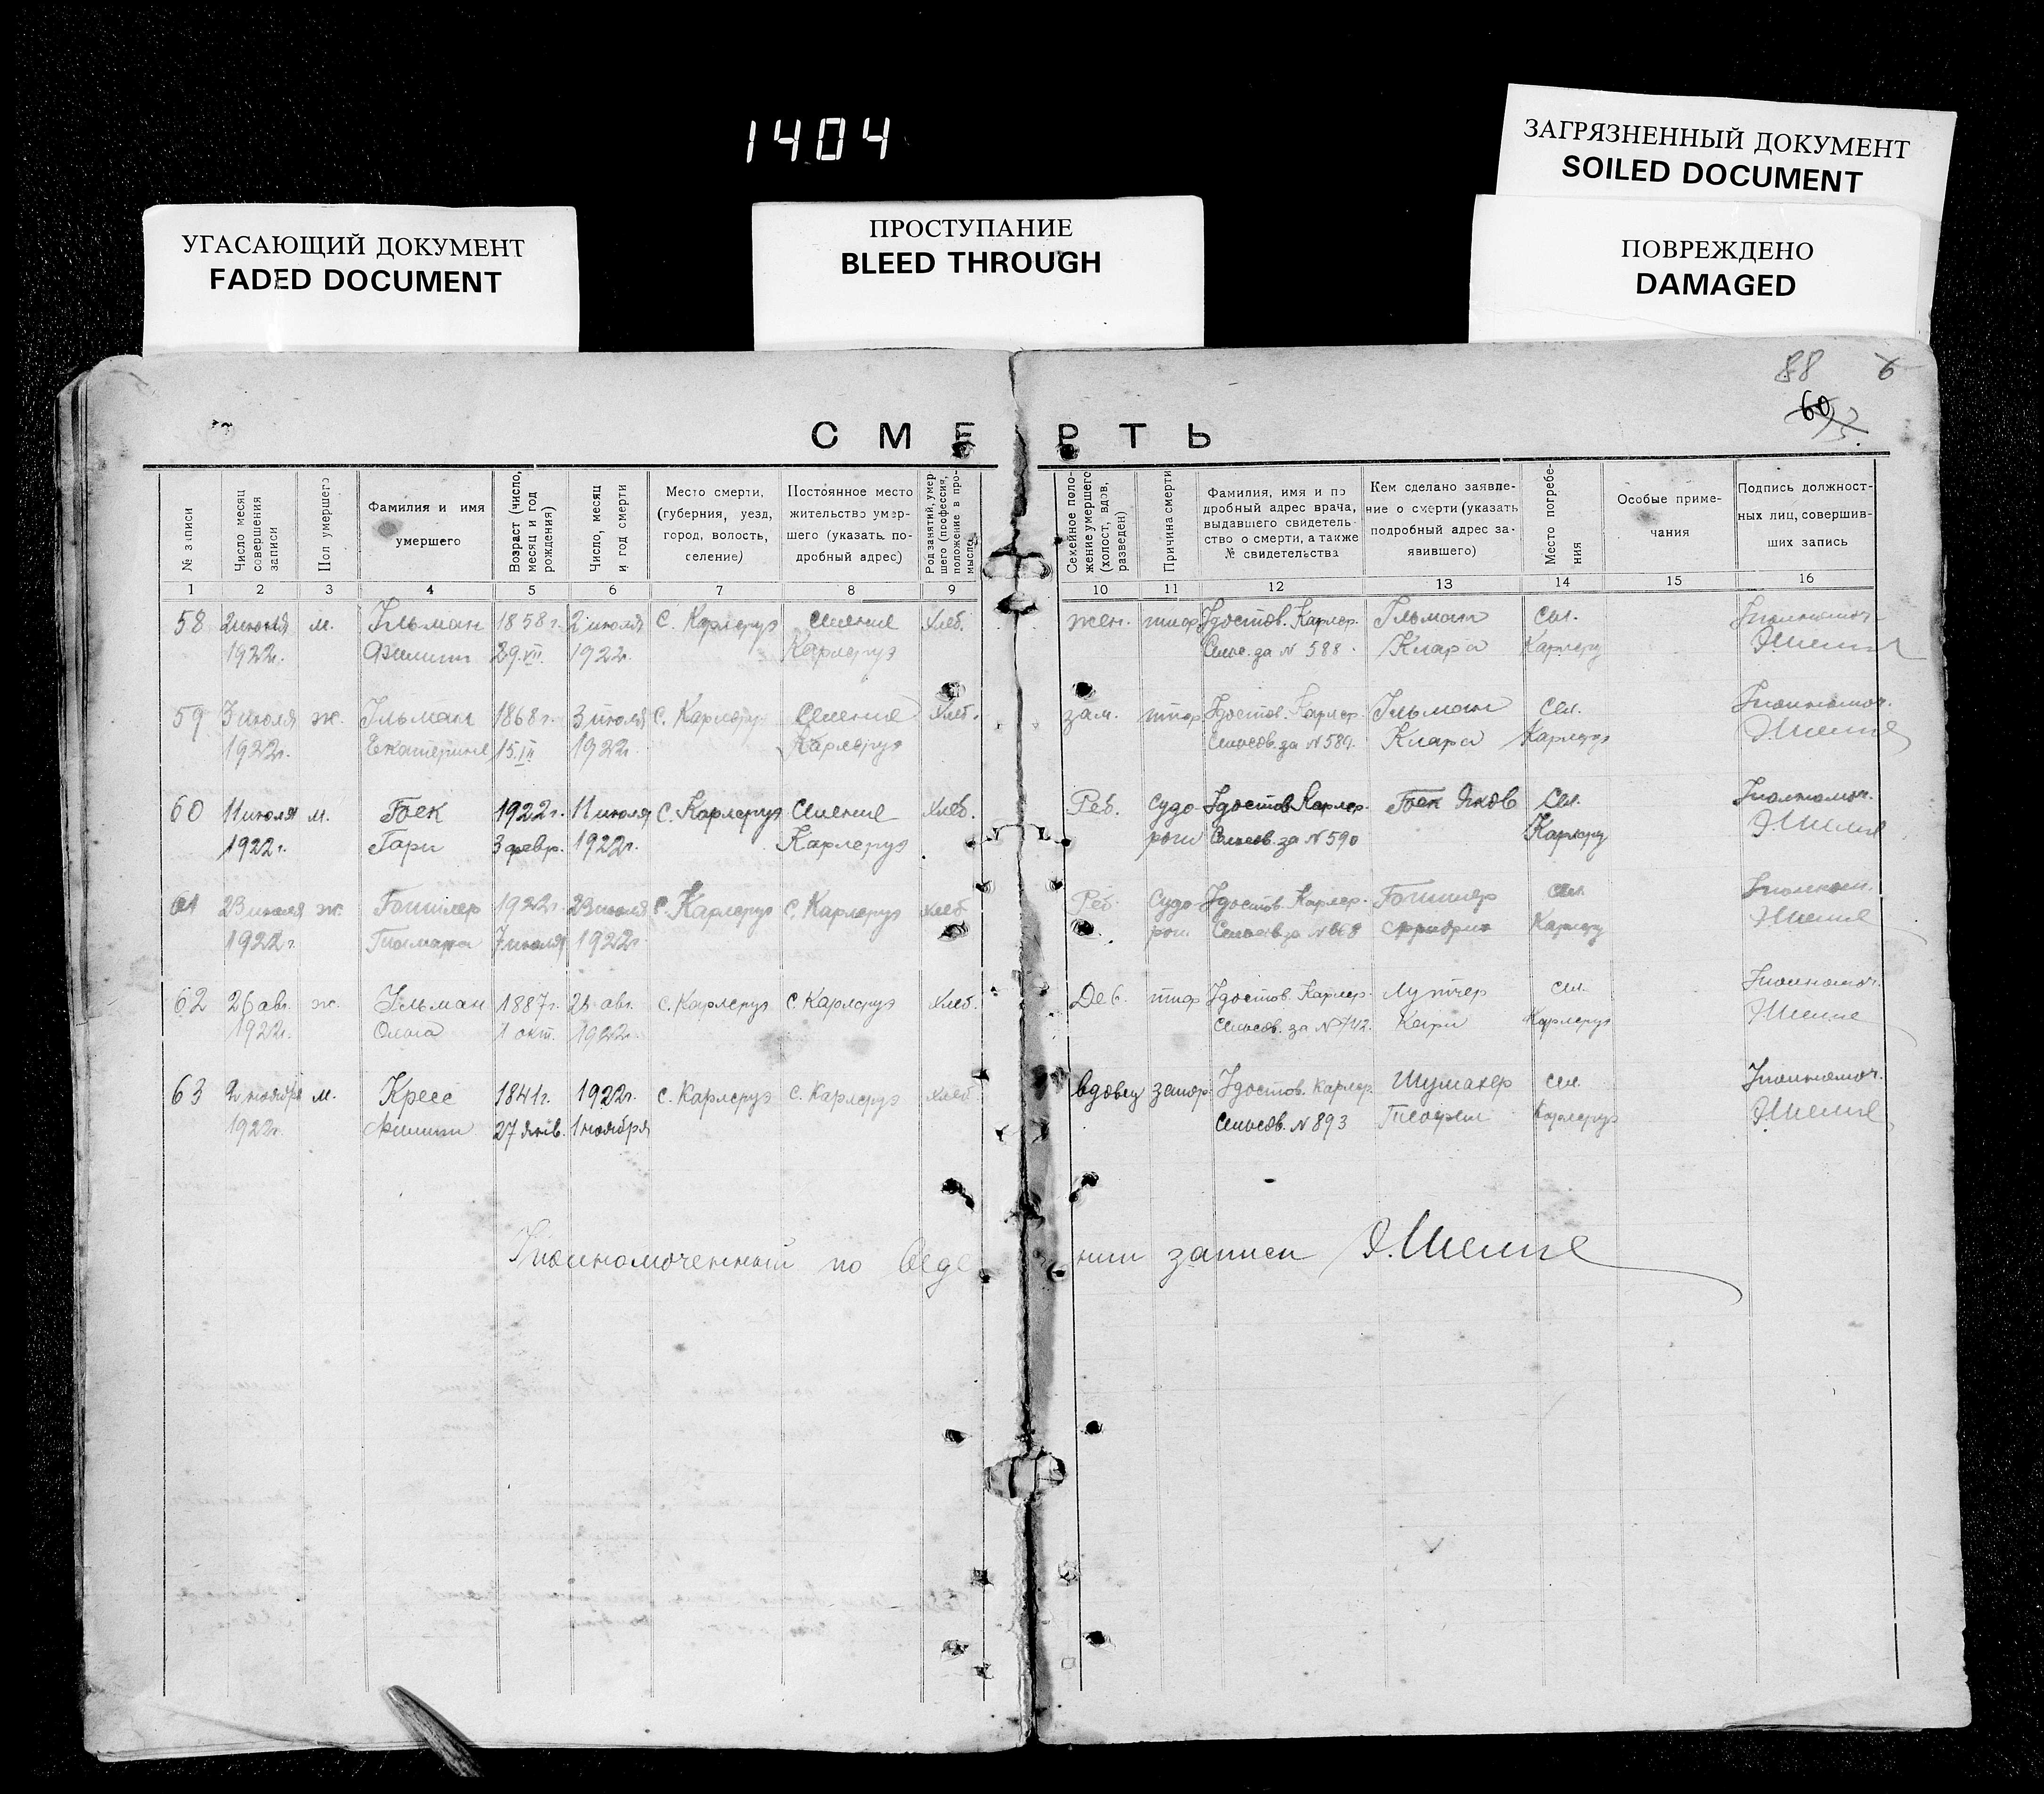 1404
ЗАГРЯЗНЕННЫЙ ДОКУМЕНТ
SOILED DOCUMENT
УГАСАЮЩИЙ ДОКУМЕНТ
FADED DOCUMENT
ПРОСТУПАНИЕ
BLEED THROUGH
ПОВРЕЖДЕНО
DAMAGED
88 6
60
СМЕРТЬ
№ записи
Число месяц совершения записи
Пол умершего
Фамилия и имя умершего
Возраст (число, месяц и год рождения)
Число, месяц и год смерти
Место смерти, (губерния, уезд, город, волость, селение)
Постоянное место жительство умершего (указать подробный адрес)
Род занятий, умершего (профессия, положение в промысле)
Семейное положение умершего (холост, вдов, разведен)
Причина смерти
Фамилия, имя и подробный адрес врача, выдавшего свидетельство о смерти, а также № свидетельства
Кем сделано заявление о смерти (указать подробный адрес заявившего)
Место погребения
Особые примечания
Подпись должностных лиц, совершивших запись
1 2 3 4 5 6 7 8 9 10 11 12 13 14 15 16
58 2 июля м. Гльман 1858 г. 2 июля С. Карлсруэ Селение Хлеб. жен. тиф Удостов. Карлср. Гльман Сел. Уполномоч.
1922г. Филипп 29.VII 1922г. Карлсруэ Сельс. за № 588 Клара Карлсру
59 3 июля ж. Гльман 1868 г. 3 июля С. Карлсруэ Селение Хлеб. зам. тиф Удостов. Карлср. Гльман Сел. Уполномоч.
1922г. Екатерина 15. 1922г. Карлсруэ Сельсов. за № 589. Клара Карлсруэ
60 11 июля м. Бек 1922 г. 11 июля С. Карлсруэ Селение Хлеб. Реб. судо Удостов. Карлср. Яков Сел. Уполномоч.
1922г. Гари 3 февр. 1922г. Карлсруэ роги Сельсов. за № 590 Карлсру
61 23 июля ж. 1922г. 23 июля С. Карлсруэ С. Карлсруэ Хлеб Реб. Судо Удостов. Карлср. Сел.
1922г. 7 июля 1922г. роги Сельсов за № Фридрих Карлсру
62 26 авг. ж. Гльман 1887г. авг. С. Карлсруэ С. Карлсруэ Хлеб. Дев. тиф Удостов. Карлср. Сел. Уполномоч.
1922г. Ольга 1 окт. 1922г. Сельсов. за № Карл Карлсруэ
63 2 ноября м. Кресс 1841г. 1922г. С. Карлсруэ С. Карлсруэ Хлеб вдовец запор. Удостов. Карлср. Шумахер Сел. Уполномоч.
1922г. Филипп 27 янв. 1 ноября Сельсов. № 893 Теофил Карлсруэ
Уполномоченный по веде нии записи